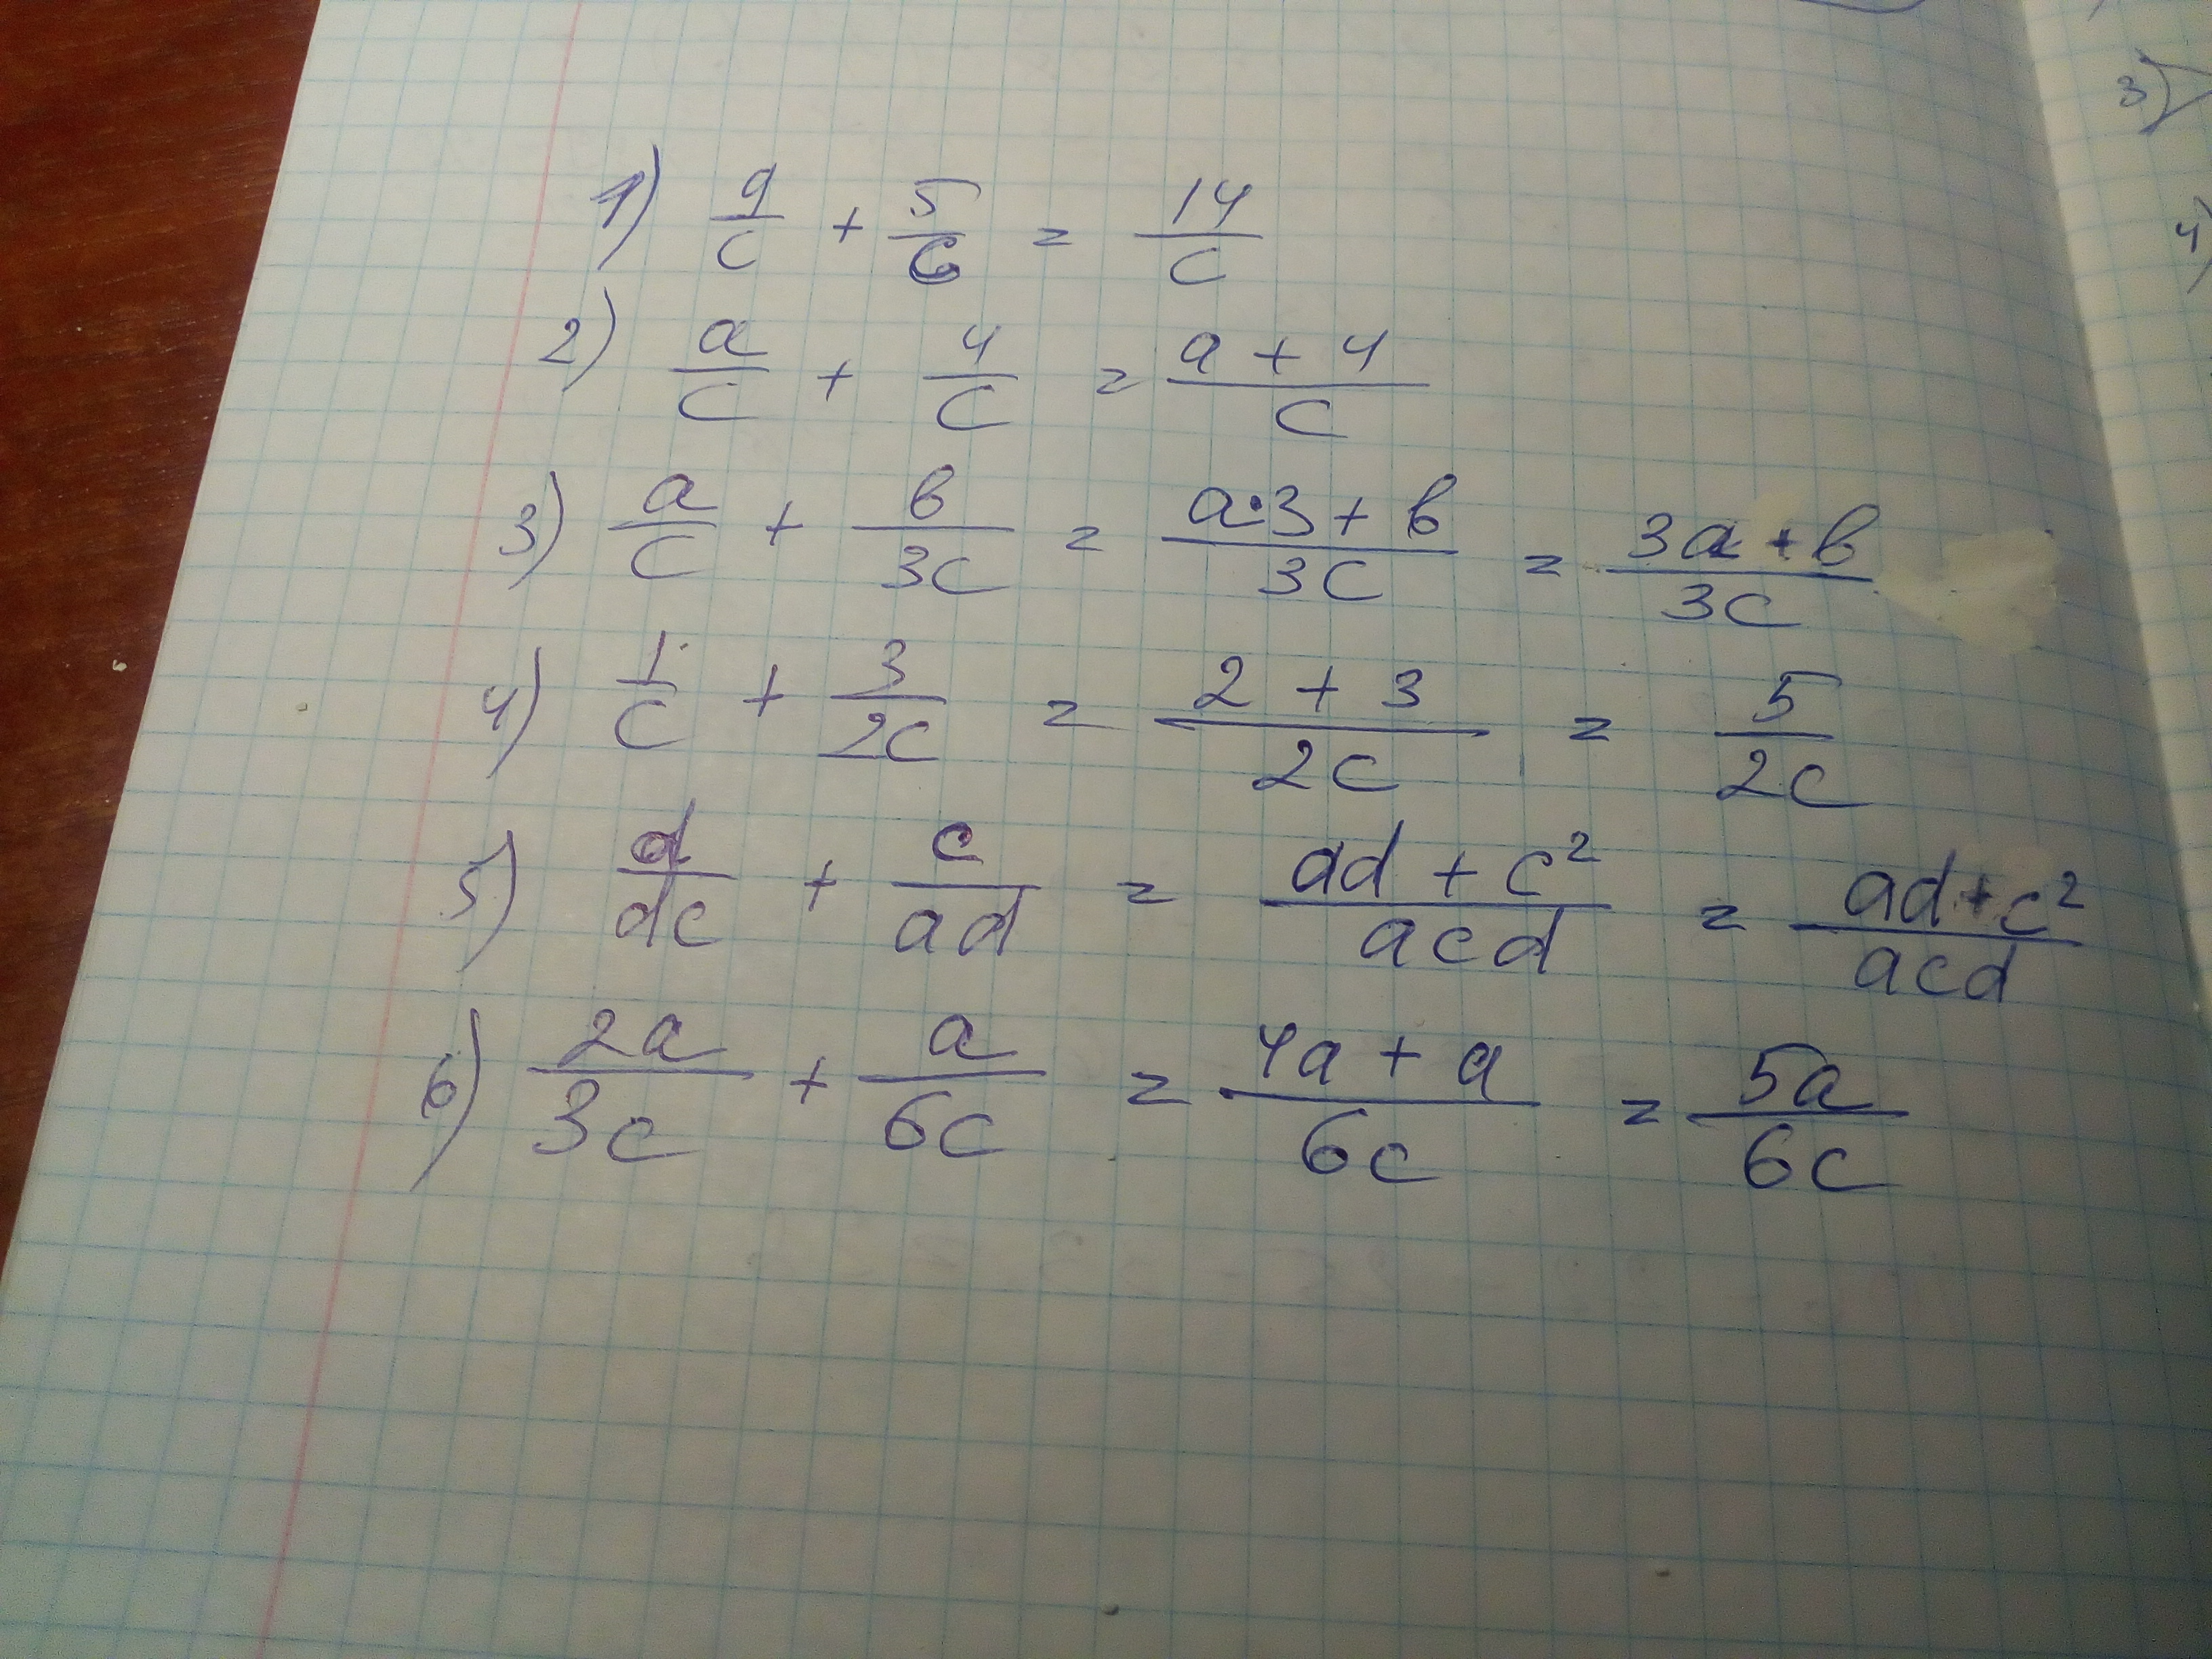 1) 9/c + 5/c = 14/c
2) a/c + 4/c = a + 4/c
3) a/c + в/3c = a·3 + в/3c = 3a + в/3c
4) 1/c + 3/2c = 2 + 3/2c = 5/2c
5) d/dc + c/ad = ad + c²/acd = ad + c²/acd
6) 2a/3c + a/6c = 4a + a/6c = 5a/6c
3)
4)